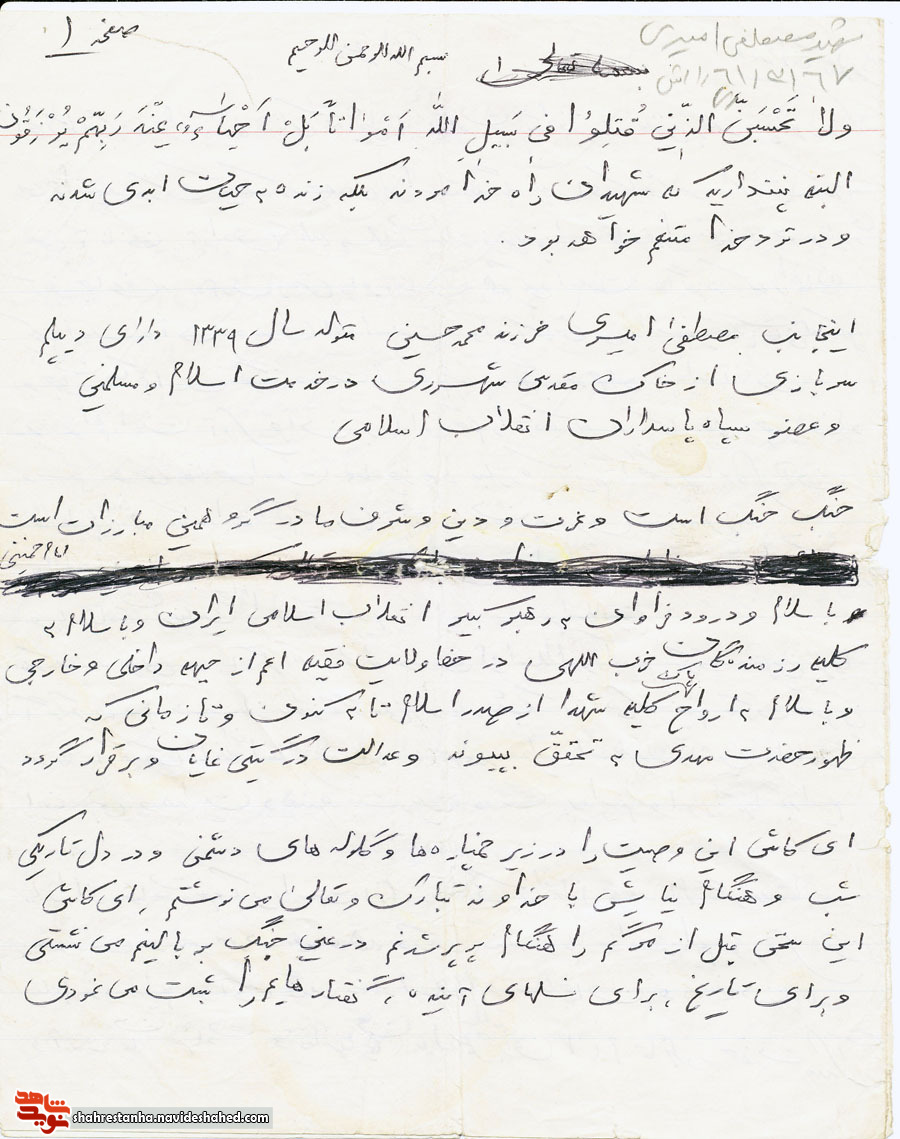 صفحه ۱
شهید مصطفی امیری
۶۱/۳/۶۷
بسم الله الرحمن الرحیم
ولا تَحْسَبَنَّ الذّینَ قُتِلوُا فی سَبیلِ اللّهِ اَمْواتاً بَلْ اَحْیاءٌ عِنْدَ رَبِّهِمْ یُرْزَقُون
البته نپندارید که شهیدان راه خدا مردند بلکه زنده به حیات ابدی شدند
و در نزد خدا متنعم خواهد بود.
اینجانب مصطفی امیری فرزند محمدحسین متولد سال ۱۳۳۹ دارای دیپلم
سربازی از خاک مقدس شهرری در خدمت اسلام و مسلمین
و عضو سپاه پاسداران انقلاب اسلامی
جنگ جنگ است و عزت و دین و شرف ما در گرو همین مبارزات است
امام خمینی
و با سلام و درود فراوان به رهبر کبیر انقلاب اسلامی ایران و با سلام به
کلیه رزمندگان حزب اللهی در خط ولایت فقیه اعم از جبهه داخلی و خارجی
و با سلام به ارواح پاک کلیه شهدا از صدر اسلام تا به کنون و تا زمانی که
ظهور حضرت مهدی به تحققّ بپیوندد و عدالت در گیتی نمایان و برقرار گردد
ای کاش این وصیت را در زیر خمپاره ها و گلوله های دشمن و در دل تاریکی
شب و هنگام نیایش با خداوند تبارک و تعالی می نوشتم. ای کاش
این سخن قبل از مرگم را هنگام پرپر شدنم در عین جنگ بر بالینم می نشستی
و برای تاریخ، برای نسلهای آینده، گفتارهایم را ثبت می نمودی
نوید شاهد
shahrestanha.navideshahed.com